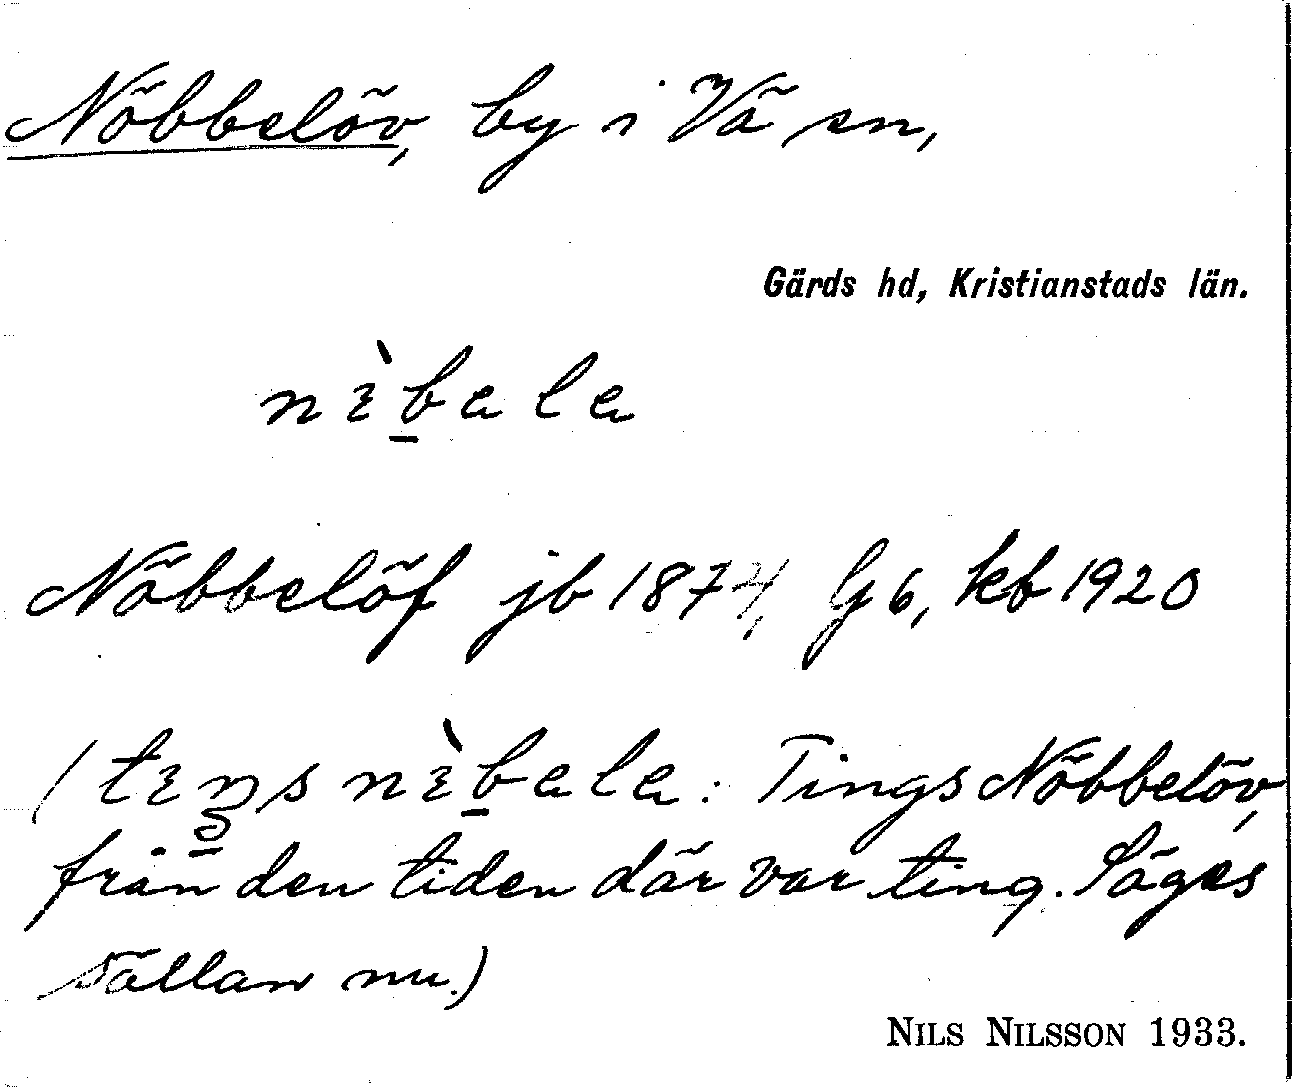 Nöbbelöv, by i Vä sn,
Gärds hd, Kristianstads län.
nɛ̀b̲ala
Nöbbelöf jb 1874, G 6, kb 1920
(tɛŋs nɛ̀b̲ala: Tings Nöbbelöv,
från den tiden där var ting. Säges
sällan nu.)
NILS NILSSON 1933.